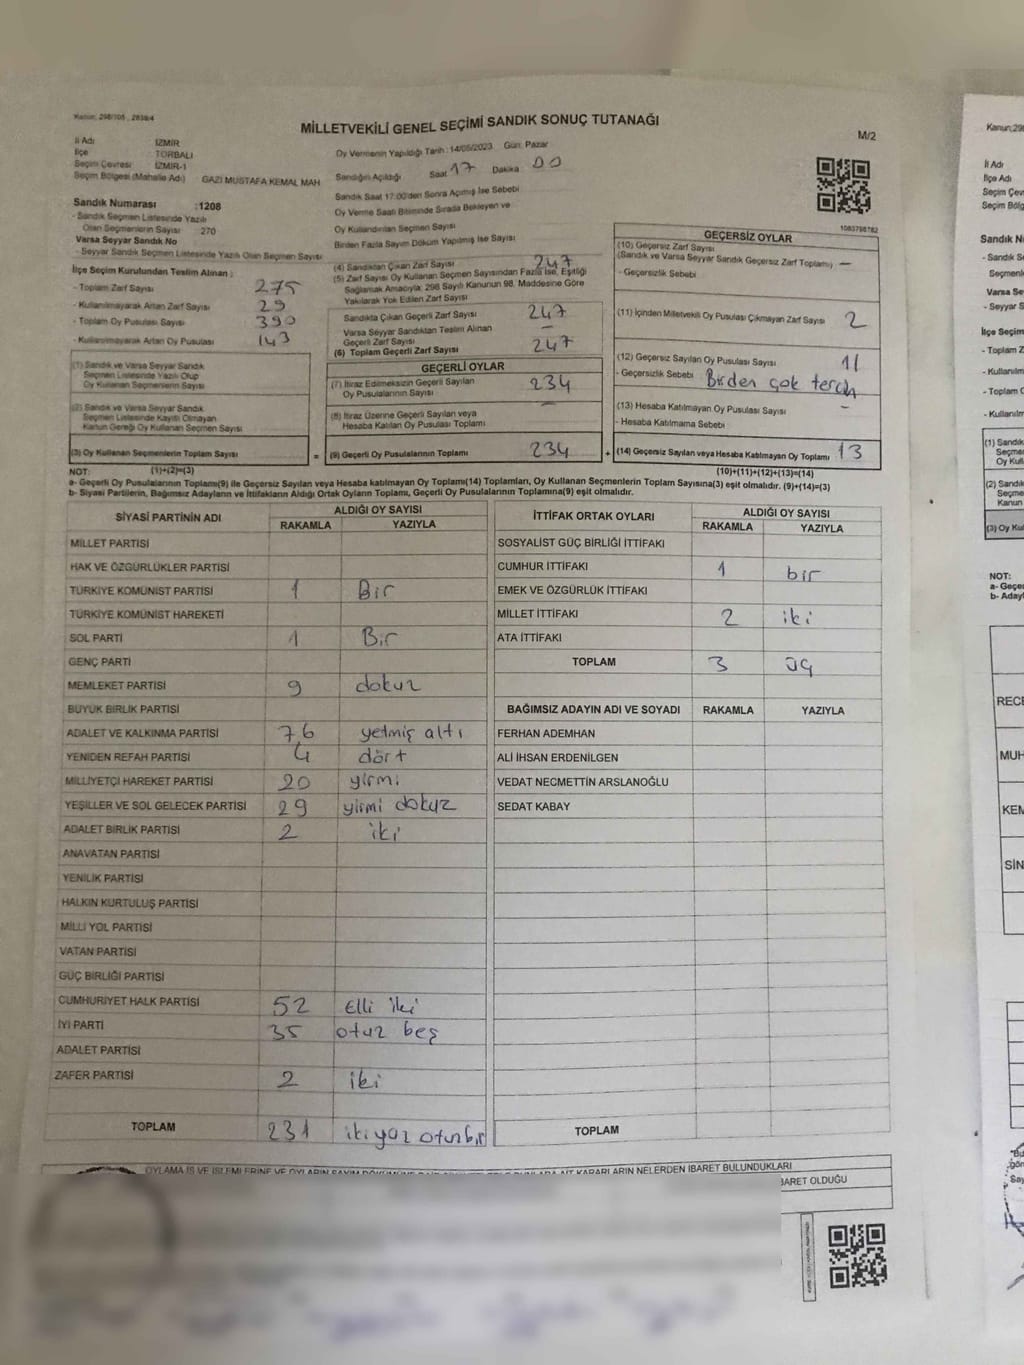 Kanun: 298/105 , 2839/4
MİLLETVEKİLİ GENEL SEÇİMİ SANDIK SONUÇ TUTANAĞI
M/2
İl Adı İZMİR
İlçe TORBALI
Seçim Çevresi İZMİR-1
Seçim Bölgesi (Mahalle Adı) GAZI MUSTAFA KEMAL MAH
Oy Vermenin Yapıldığı Tarih :14/05/2023 Gün: Pazar
Sandığın Açıldığı Saat 17 Dakika 00
Sandık Saat 17:00'den Sonra Açılmış İse Sebebi
Oy Verme Saati Bitiminde Sırada Bekleyen ve
Oy Kullandırılan Seçmen Sayısı
Birden Fazla Sayım Döküm Yapılmış İse Sayısı
1083798782
Sandık Numarası :1208
- Sandık Seçmen Listesinde Yazılı
Olan Seçmenlerin Sayısı 270
Varsa Seyyar Sandık No
- Seyyar Sandık Seçmen Listesinde Yazılı Olan Seçmen Sayısı
İlçe Seçim Kurulundan Teslim Alınan ;
- Toplam Zarf Sayısı 275
- Kullanılmayarak Artan Zarf Sayısı 29
- Toplam Oy Pusulası Sayısı 390
- Kullanılmayarak Artan Oy Pusulası 143
(1) Sandık ve Varsa Seyyar Sandık
Seçmen Listesinde Yazılı Olup
Oy Kullanan Seçmenlerin Sayısı
(2) Sandık ve Varsa Seyyar Sandık
Seçmen Listesinde Kayıtlı Olmayan
Kanun Gereği Oy Kullanan Seçmen Sayısı
(3) Oy Kullanan Seçmenlerin Toplam Sayısı
(4) Sandıktan Çıkan Zarf Sayısı 247
(5) Zarf Sayısı Oy Kullanan Seçmen Sayısından Fazla İse, Eşitliği
Sağlamak Amacıyla; 298 Sayılı Kanunun 98. Maddesine Göre
Yakılarak Yok Edilen Zarf Sayısı
Sandıkta Çıkan Geçerli Zarf Sayısı 247
Varsa Seyyar Sandıktan Teslim Alınan
Geçerli Zarf Sayısı -
(6) Toplam Geçerli Zarf Sayısı 247
GEÇERLİ OYLAR
(7) İtiraz Edilmeksizin Geçerli Sayılan
Oy Pusulalarının Sayısı 234
(8) İtiraz Üzerine Geçerli Sayılan veya
Hesaba Katılan Oy Pusulası Toplamı -
= (9) Geçerli Oy Pusulalarının Toplamı 234
GEÇERSİZ OYLAR
(10) Geçersiz Zarf Sayısı
(Sandık ve Varsa Seyyar Sandık Geçersiz Zarf Toplamı) -
- Geçersizlik Sebebi
(11) İçinden Milletvekili Oy Pusulası Çıkmayan Zarf Sayısı 2
(12) Geçersiz Sayılan Oy Pusulası Sayısı 11
- Geçersizlik Sebebi Birden çok tercih
(13) Hesaba Katılmayan Oy Pusulası Sayısı -
- Hesaba Katılmama Sebebi
+ (14) Geçersiz Sayılan veya Hesaba Katılmayan Oy Toplamı 13
NOT: (1)+(2)=(3) (10)+(11)+(12)+(13)=(14)
a- Geçerli Oy Pusulalarının Toplamı(9) ile Geçersiz Sayılan veya Hesaba katılmayan Oy Toplamı(14) Toplamları, Oy Kullanan Seçmenlerin Toplam Sayısına(3) eşit olmalıdır. (9)+(14)=(3)
b- Siyasi Partilerin, Bağımsız Adayların ve İttifakların Aldığı Ortak Oyların Toplamı, Geçerli Oy Pusulalarının Toplamına(9) eşit olmalıdır.
SİYASİ PARTİNİN ADI ALDIĞI OY SAYISI
RAKAMLA YAZIYLA
MİLLET PARTİSİ
HAK VE ÖZGÜRLÜKLER PARTİSİ
TÜRKİYE KOMÜNİST PARTİSİ 1 Bir
TÜRKİYE KOMÜNİST HAREKETİ
SOL PARTİ 1 Bir
GENÇ PARTİ
MEMLEKET PARTİSİ 9 dokuz
BÜYÜK BİRLİK PARTİSİ
ADALET VE KALKINMA PARTİSİ 76 yetmiş altı
YENİDEN REFAH PARTİSİ 4 dört
MİLLİYETÇİ HAREKET PARTİSİ 20 yirmi
YEŞİLLER VE SOL GELECEK PARTİSİ 29 yirmi dokuz
ADALET BİRLİK PARTİSİ 2 iki
ANAVATAN PARTİSİ
YENİLİK PARTİSİ
HALKIN KURTULUŞ PARTİSİ
MİLLİ YOL PARTİSİ
VATAN PARTİSİ
GÜÇ BİRLİĞİ PARTİSİ
CUMHURİYET HALK PARTİSİ 52 Elli iki
İYİ PARTİ 35 otuz beş
ADALET PARTİSİ
ZAFER PARTİSİ 2 iki
TOPLAM 231 ikiyüz otuzbir
İTTİFAK ORTAK OYLARI ALDIĞI OY SAYISI
RAKAMLA YAZIYLA
SOSYALİST GÜÇ BİRLİĞİ İTTİFAKI
CUMHUR İTTİFAKI 1 bir
EMEK VE ÖZGÜRLÜK İTTİFAKI
MİLLET İTTİFAKI 2 iki
ATA İTTİFAKI
TOPLAM 3 üç
BAĞIMSIZ ADAYIN ADI VE SOYADI RAKAMLA YAZIYLA
FERHAN ADEMHAN
ALİ İHSAN ERDENİLGEN
VEDAT NECMETTİN ARSLANOĞLU
SEDAT KABAY
TOPLAM
NELERDEN İBARET BULUNDUKLARI
BARET OLDUĞU
Kanun:29
İli Adı
İlçe Adı
Seçim Çev
Seçim Bölg
Sandık N
- Sandık Se
Seçmenle
Varsa Se
- Seyyar S
İlçe Seçim
- Toplam Z
- Kullanılm
- Toplam O
- Kullanılm
(1) Sandık
Seçme
Oy Kull
(2) Sandık
Seçme
Kanun
(3) Oy Kul
NOT:
a- Geçer
b- Aday
RECE
MUH
KEM
SİN